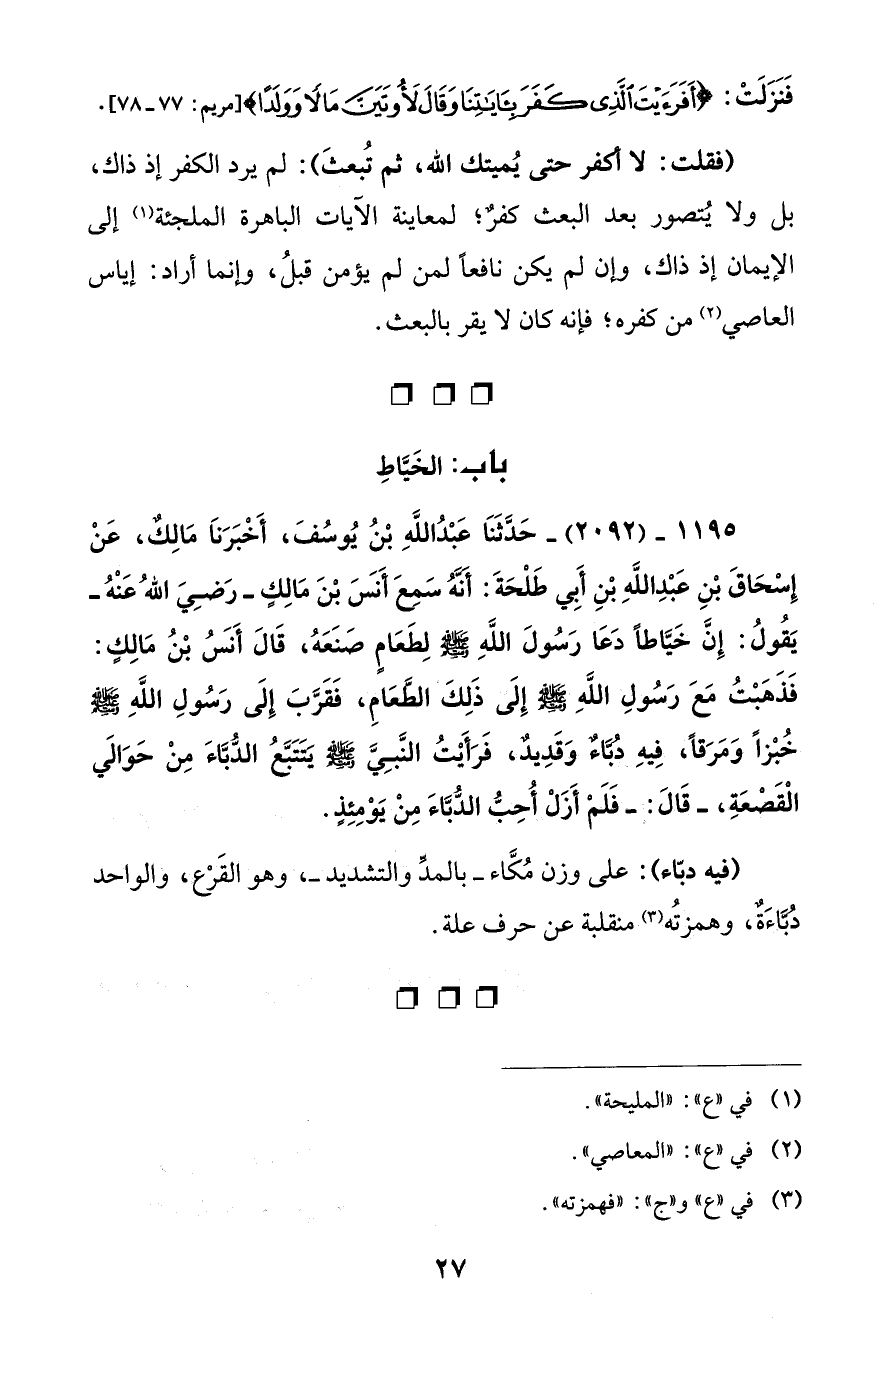 فَنَزَلَتْ: ﴿أَفَرَءَيْتَ ٱلَّذِى كَفَرَ بِـَٔايَـٰتِنَا وَقَالَ لَأُوتَيَنَّ مَالًا وَوَلَدًا﴾[مريم: ٧٧ ـ ٧٨].
(فقلت: لا أكفر حتى يُميتك الله، ثم تُبعثَ): لم يرد الكفر إذ ذاك،
بل ولا يُتصور بعد البعث كفرٌ؛ لمعاينة الآيات الباهرة الملجئة(١) إلى
الإيمان إذ ذاك، وإن لم يكن نافعاً لمن لم يؤمن قبلُ، وإنما أراد: إياس
العاصي(٢) من كفره؛ فإنه كان لا يقر بالبعث.
❒ ❒ ❒
باب: الخَيَّاطِ
١١٩٥ ـ (٢٠٩٢) ـ حَدَّثَنَا عَبْدُاللَّهِ بْنُ يُوسُفَ، أَخْبَرَنَا مَالِكٌ، عَنْ
إِسْحَاقَ بْنِ عَبْدِاللَّهِ بْنِ أَبِي طَلْحَةَ: أَنَّهُ سَمِعَ أَنَسَ بْنَ مَالِكٍ ـ رَضِيَ اللهُ عَنْهُ ـ
يَقُولُ: إِنَّ خَيَّاطاً دَعَا رَسُولَ اللَّهِ ﷺ لِطَعَامٍ صَنَعَهُ، قَالَ أَنَسُ بْنُ مَالِكٍ:
فَذَهَبْتُ مَعَ رَسُولِ اللَّهِ ﷺ إِلَى ذَلِكَ الطَّعَامِ، فَقَرَّبَ إِلَى رَسُولِ اللَّهِ ﷺ
خُبْزاً وَمَرَقاً، فِيهِ دُبَّاءٌ وَقَدِيدٌ، فَرَأَيْتُ النَّبِيَّ ﷺ يَتَتَبَّعُ الدُّبَّاءَ مِنْ حَوَالَيِ
الْقَصْعَةِ، ـ قَالَ: ـ فَلَمْ أَزَلْ أُحِبُّ الدُّبَّاءَ مِنْ يَوْمِئِذٍ.
(فيه دبّاء): على وزن مُكَّاء ـ بالمدِّ والتشديد ـ، وهو القَرْع، والواحد
دُبَّاءَةٌ، وهمزتُه(٣) منقلبة عن حرف علة.
❒ ❒ ❒
(١) في «ع»: «المليحة».
(٢) في «ع»: «المعاصي».
(٣) في «ع» و«ج»: «فهمزته».
٢٧